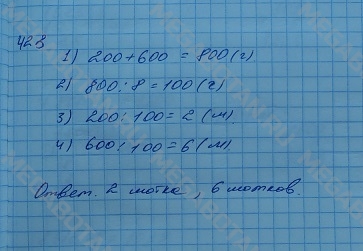 423
1) 200+600 = 800 (г)
2) 800 : 8 = 100 (г)
3) 200 : 100 = 2 (м)
4) 600 : 100 = 6 (м)
Ответ. 2 мотка, 6 мотков.